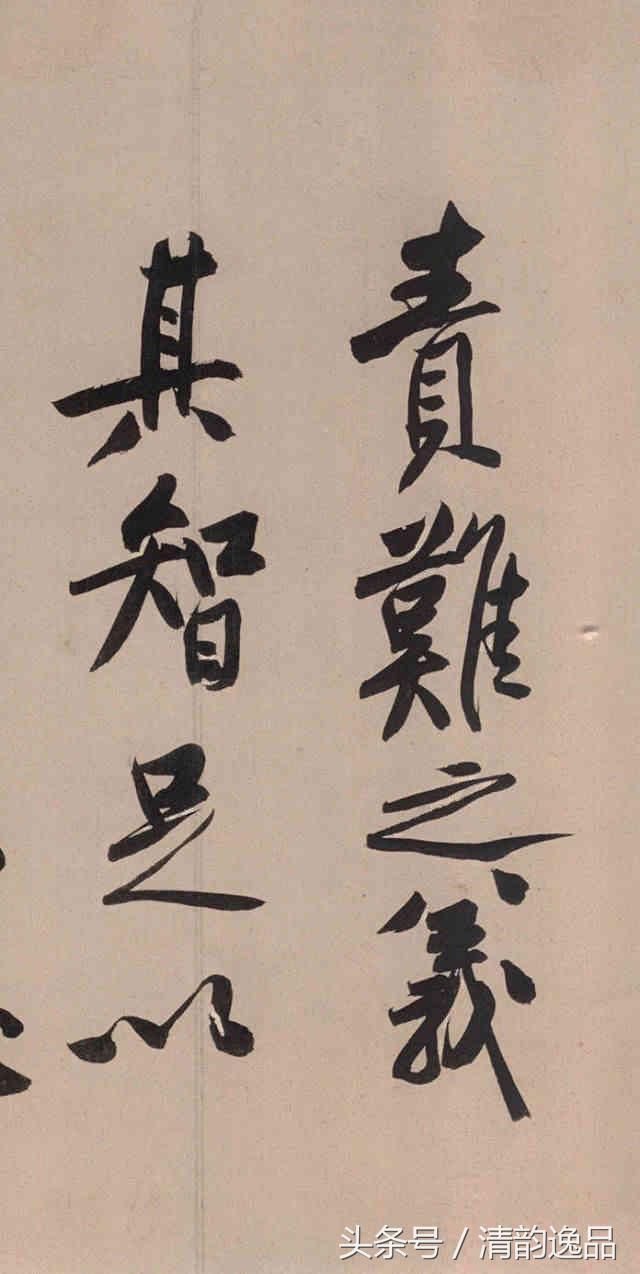 責難之義
其智足以
头条号 / 清韵逸品